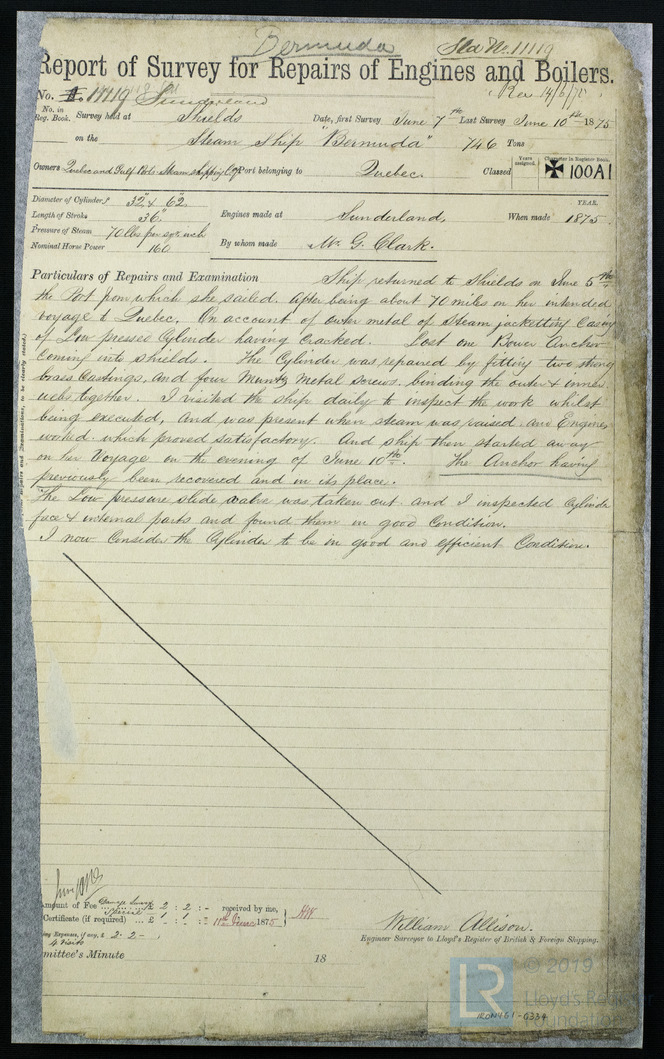 Bermuda Sld No. 11119
Report of Survey for Repairs of Engines and Boilers.
No. 11119 Sunderland Rec 14/6/75
No. in Reg. Book. Survey held at Shields Date, first Survey June 7th Last Survey June 10th 1875
on the Steam Ship "Bermuda" 746 Tons
Owners Quebec and Gulf Ports Steam shipping Co Port belonging to Quebec. Classed Years assigned. Character in Register Book. ✠ 100A1
Diameter of Cylinders 32" & 62"
Length of Stroke 36"
Pressure of Steam 70 lbs per sqr inch
Nominal Horse Power 160
Engines made at Sunderland, When made YEAR. 1875.
By whom made Mr. G. Clark.
Particulars of Repairs and Examination Ship returned to Shields on June 5th
the Port from which she sailed. After being about 70 miles on her intended
voyage to Quebec. On account of outer metal of Steam jacketting Casing
of Low pressed Cylinder having Cracked. Lost one Bower Anchor
Coming into shields. The Cylinder was repaired by fitting two strong
brass Castings, and four Muntz Metal Screws. binding the outer & inner
webs together. I visited the ship daily to inspect the work whilst
being executed, and was present when steam was raised and Engines
worked. which proved satisfactory. And ship then started away
on her Voyage on the evening of June 10th. The Anchor having
previously been recovered and in its place.
The Low pressure slide valve was taken out and I inspected Cylinder
face & internal parts and found them in good Condition.
I now Consider the Cylinder to be in good and efficient Condition.
Amount of Fee £ 2 : 2 : - received by me,
Special
Certificate (if required) ... £ - : 1 : 1 : - 11th June 1875
if any, £ 2-2-
4 visits
mittee's Minute 18
William Allison.
Engineer Surveyor to Lloyd's Register of British & Foreign Shipping.
LR © 2019
Lloyd's Register
Foundation
IRON461-0334